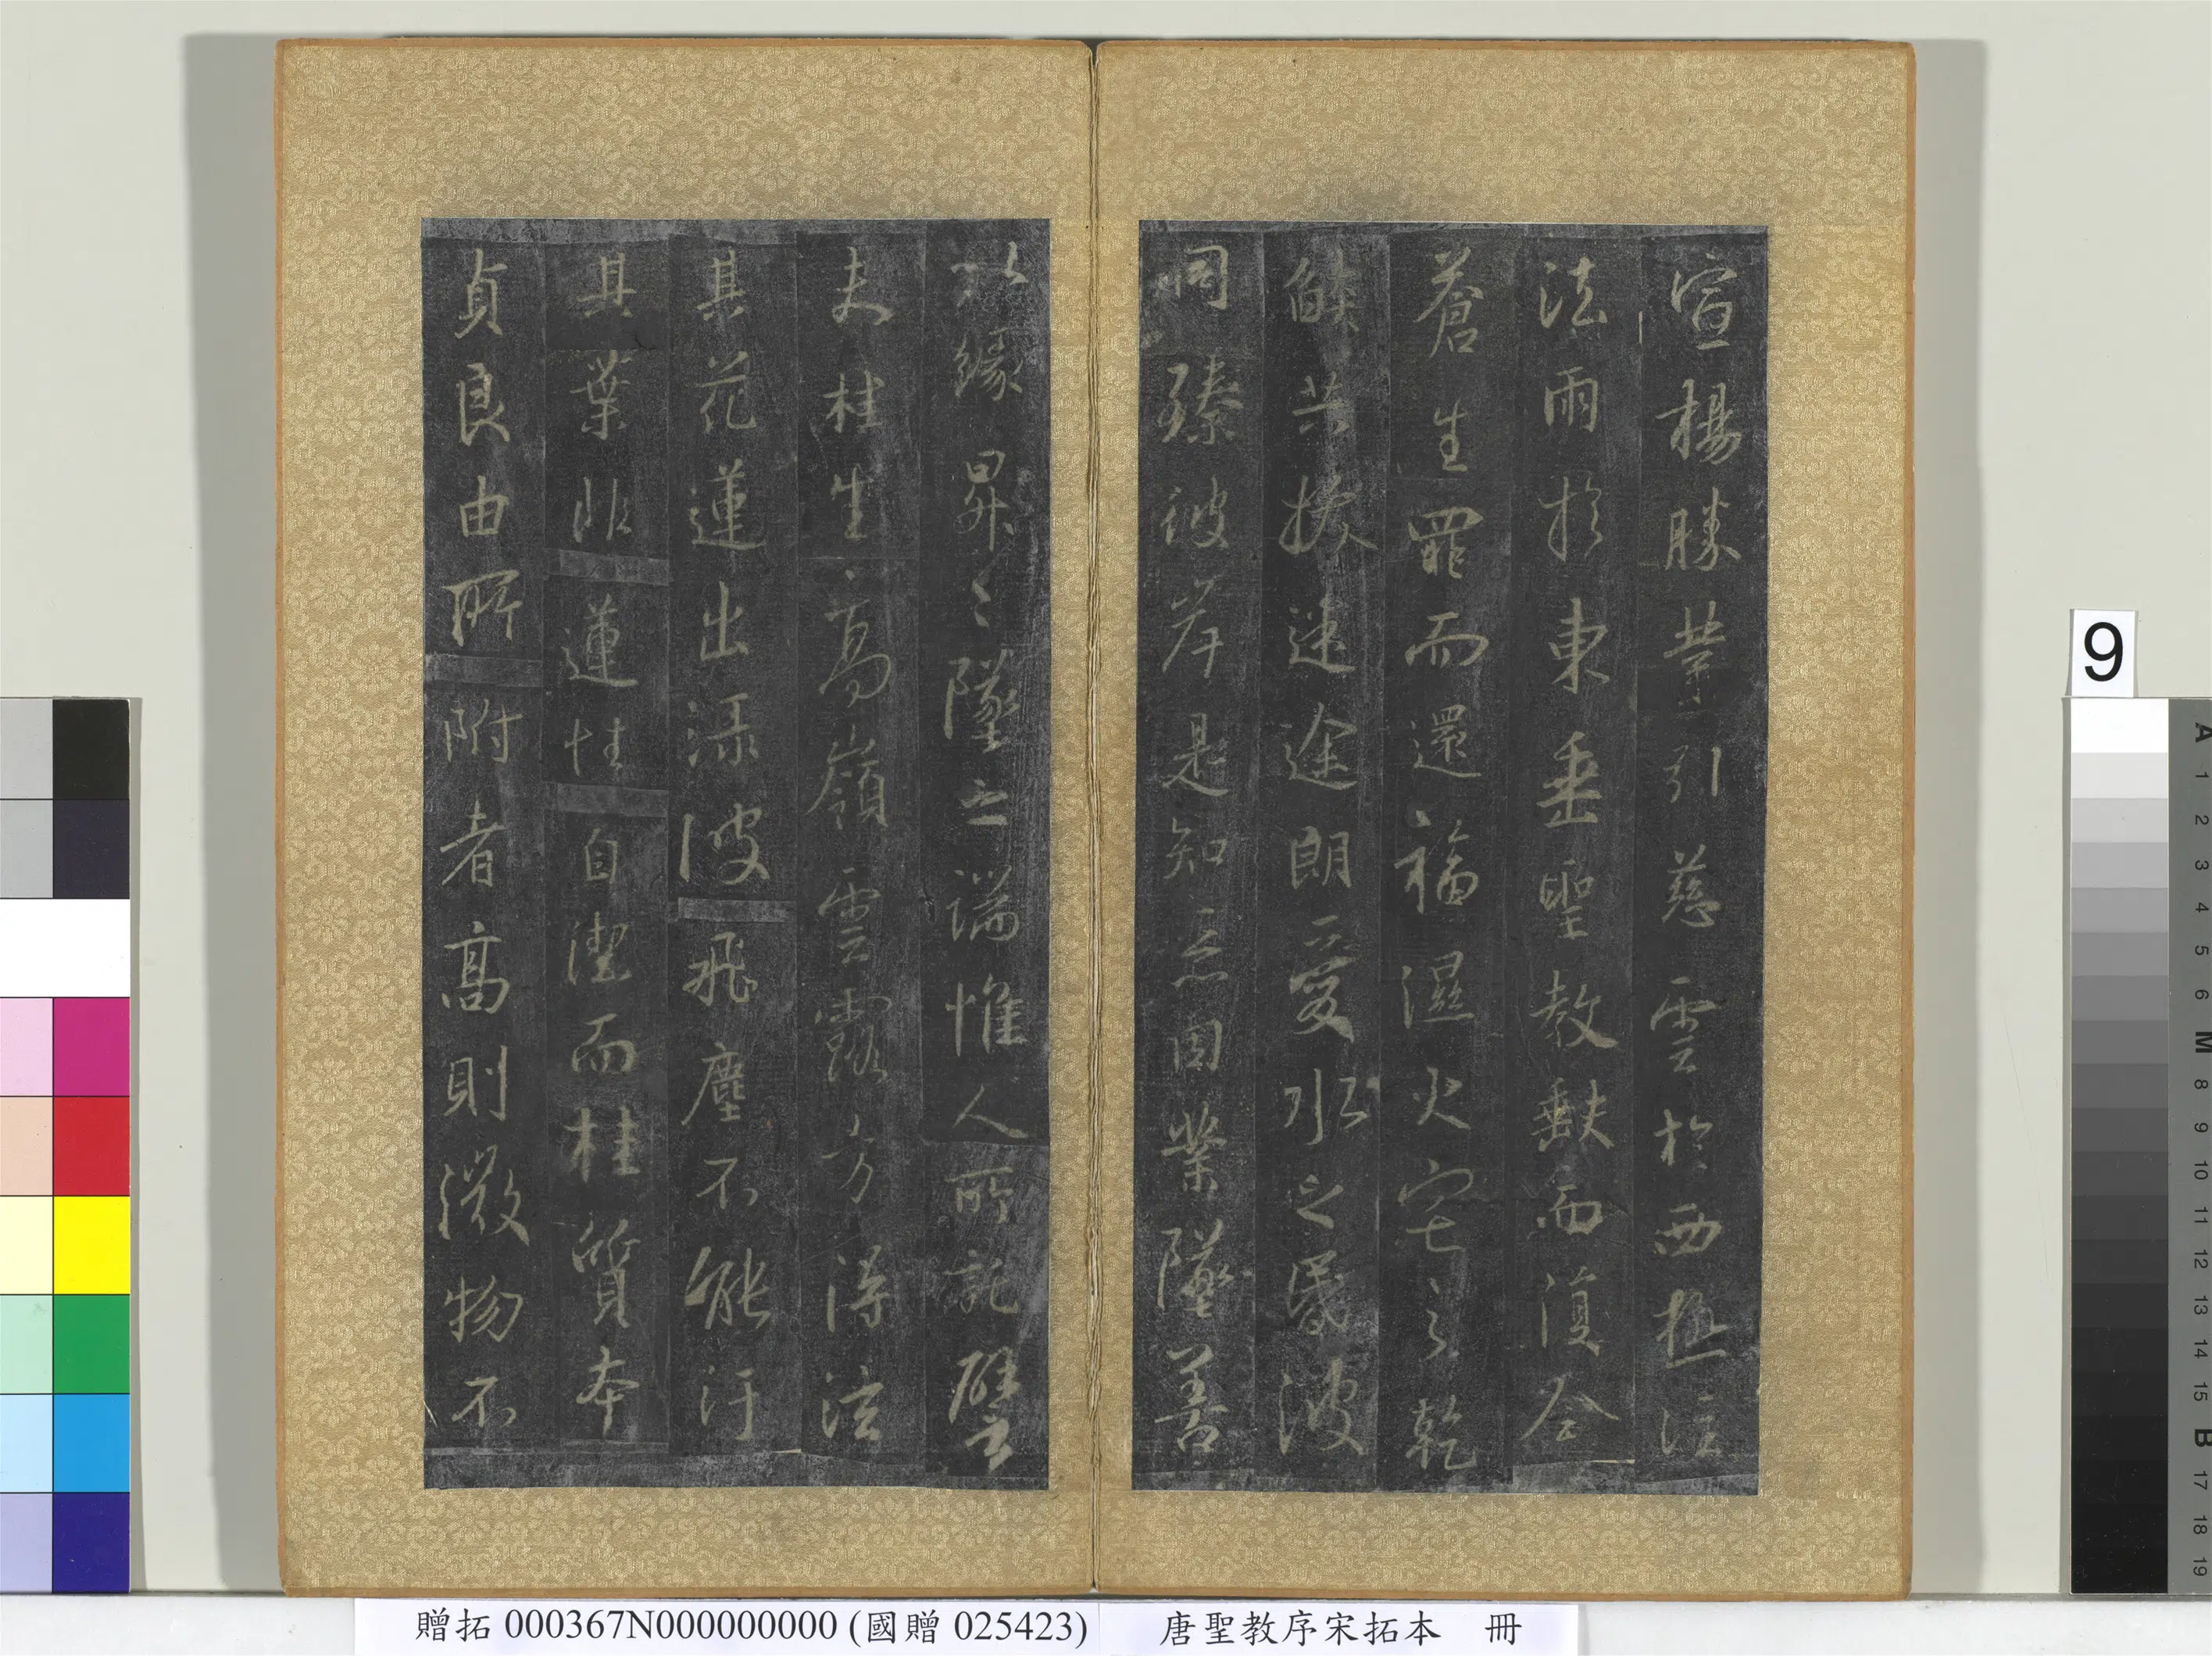 宣揚勝業引慈雲於西極注
法雨於東垂聖教缺而復全
蒼生罪而還福濕火宅之乾
燄共拔迷途朗愛水之昏波
同臻彼岸是知惡因業墜善
以緣昇昇墜之端惟人所託譬
夫桂生高嶺雲露方得泫
其花蓮出淥波飛塵不能汙
其葉非蓮性自潔而桂質本
貞良由所附者高則微物不
贈拓 000367N000000000 (國贈 025423) 唐聖教序宋拓本 冊
9
A
1
2
3
4
5
6
M
8
9
10
11
12
13
14
15
B
17
18
19